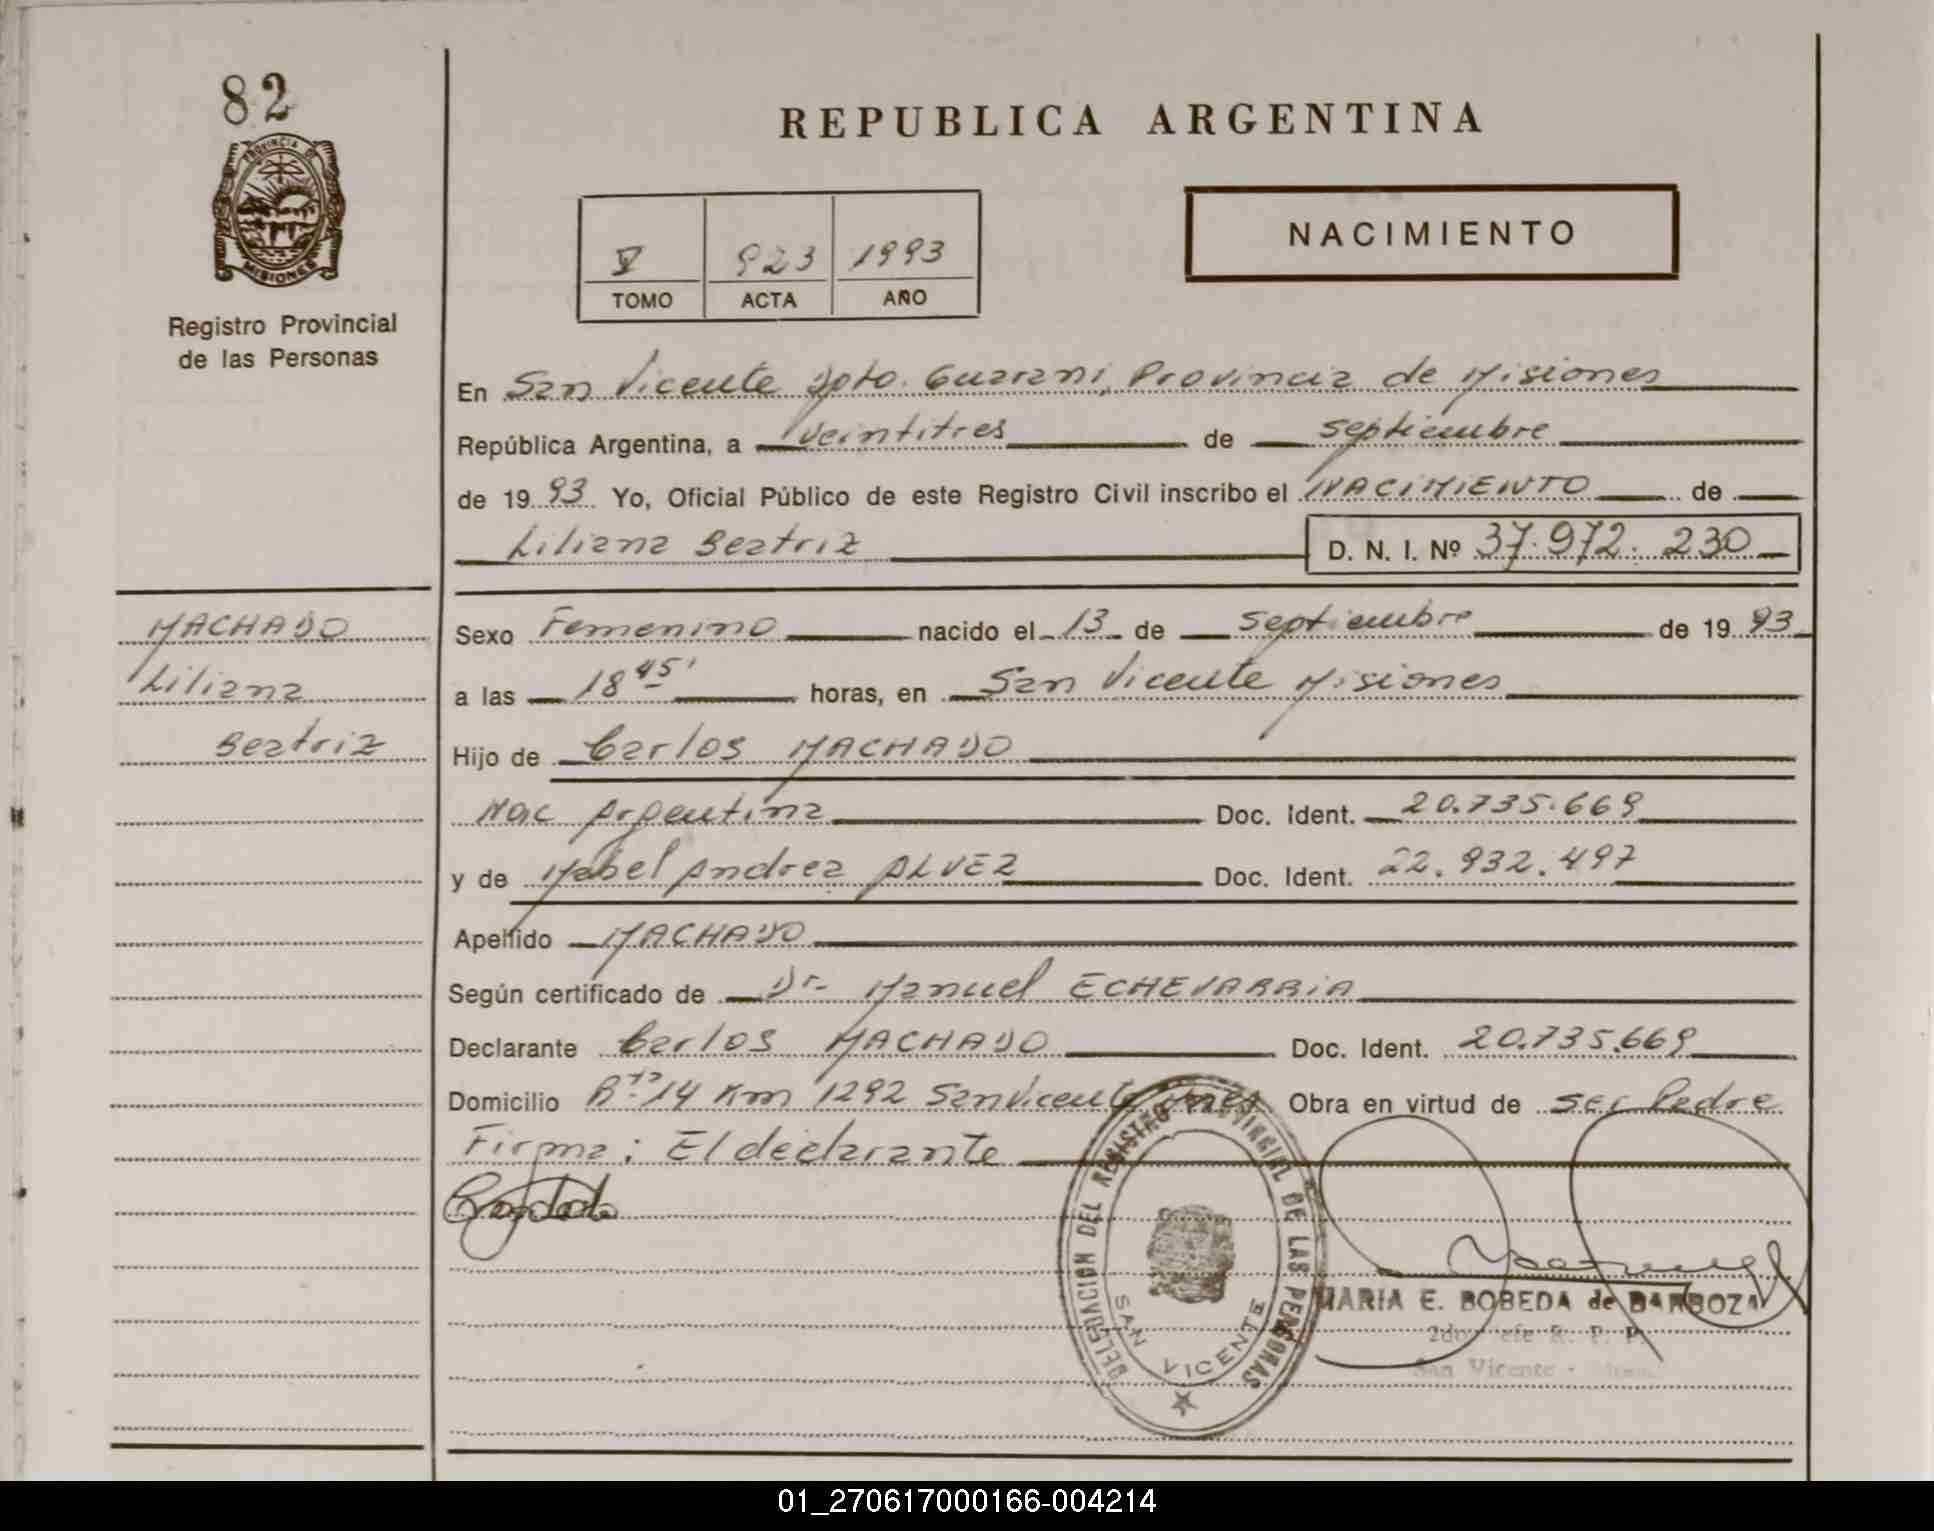 82
PROVINCIA DE
MISIONES
Registro Provincial
de las Personas
REPUBLICA ARGENTINA
V 923 1993
TOMO ACTA AÑO
NACIMIENTO
En San Vicente Dpto. Guarani, Provincia de Misiones
República Argentina, a veintitres de septiembre
de 1993 Yo, Oficial Público de este Registro Civil inscribo el NACIMIENTO de
Liliana Beatriz D. N. I. Nº 37.972.230
MACHADO
Liliana
Beatriz
Sexo Femenino nacido el 13 de septiembre de 1993
a las 18 45' horas, en San Vicente Misiones
Hijo de Carlos MACHADO
Nac Argentina Doc. Ident. 20.735.669
y de Mabel Andrea ALVEZ Doc. Ident. 22.932.497
Apellido MACHADO
Según certificado de Dr- Manuel ECHEVARRIA
Declarante Carlos MACHADO Doc. Ident. 20.735.669
Domicilio R.ta 14 Km 1292 San Vicente Mnes Obra en virtud de ser Padre
Firma: El declarante
DELEGACION DEL REGISTRO PROVINCIAL DE LAS PERSONAS
SAN VICENTE
MARIA E. BOBEDA de BARBOZA
2do Jefe R. P. P.
San Vicente -
01_270617000166-004214